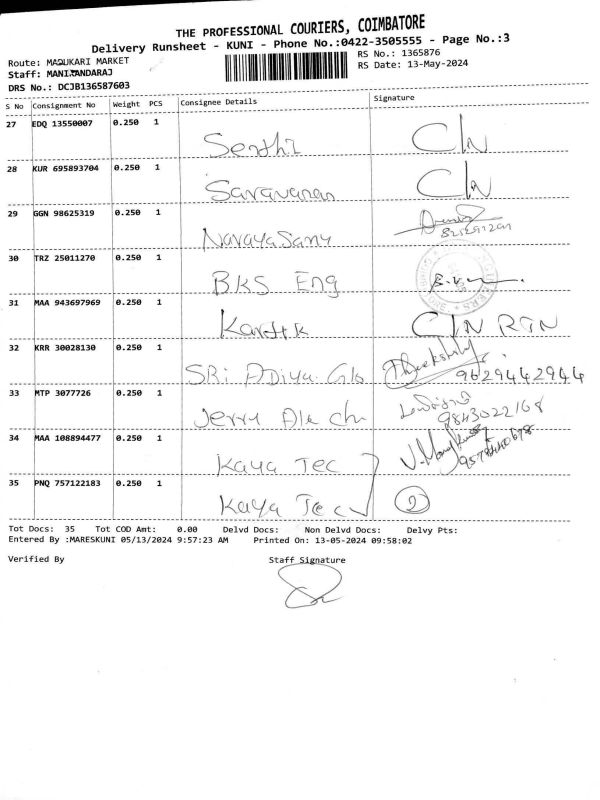 THE PROFESSIONAL COURIERS, COIMBATORE
Delivery Runsheet - KUNI - Phone No.:0422-3505555 - Page No.:3
Route: MADUKARI MARKET RS No.: 1365876
Staff: MANIKANDARAJ RS Date: 13-May-2024
DRS No.: DCJB136587603
S No Consignment No Weight PCS Consignee Details Signature
27 EDQ 13550007 0.250 1 Senthi C/N
28 KUR 695893704 0.250 1 Saravanan C/N
29 GGN 98625319 0.250 1 Narayasamy
30 TRZ 25011270 0.250 1 BKS Eng
31 MAA 943697969 0.250 1 Karthk C/N RTN
32 KRR 30028130 0.250 1 SRi ADiya Glo 9629442944
33 MTP 3077726 0.250 1 Jerry 9843022168
34 MAA 108894477 0.250 1 Kaya Tec
35 PNQ 757122183 0.250 1 Kaya Tec 2
Tot Docs: 35 Tot COD Amt: 0.00 Delvd Docs: Non Delvd Docs: Delvy Pts:
Entered By :MARESKUNI 05/13/2024 9:57:23 AM Printed On: 13-05-2024 09:58:02
Verified By Staff Signature